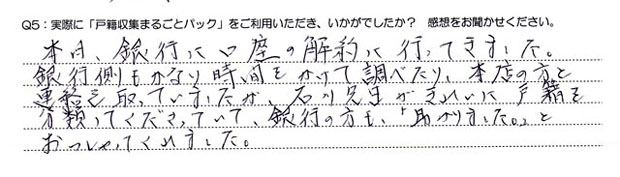 Q5：実際に「戸籍収集まるごとパック」をご利用いただき、いかがでしたか？ 感想をお聞かせください。
本日、銀行に口座の解約に行ってきました。
銀行側もかなり時間をかけて調べたり、本店の方と
連絡を取っていましたが、石川先生がきれいに戸籍を
分類してくださっていて、銀行の方も、「助かりました。」と
おっしゃってくれました。